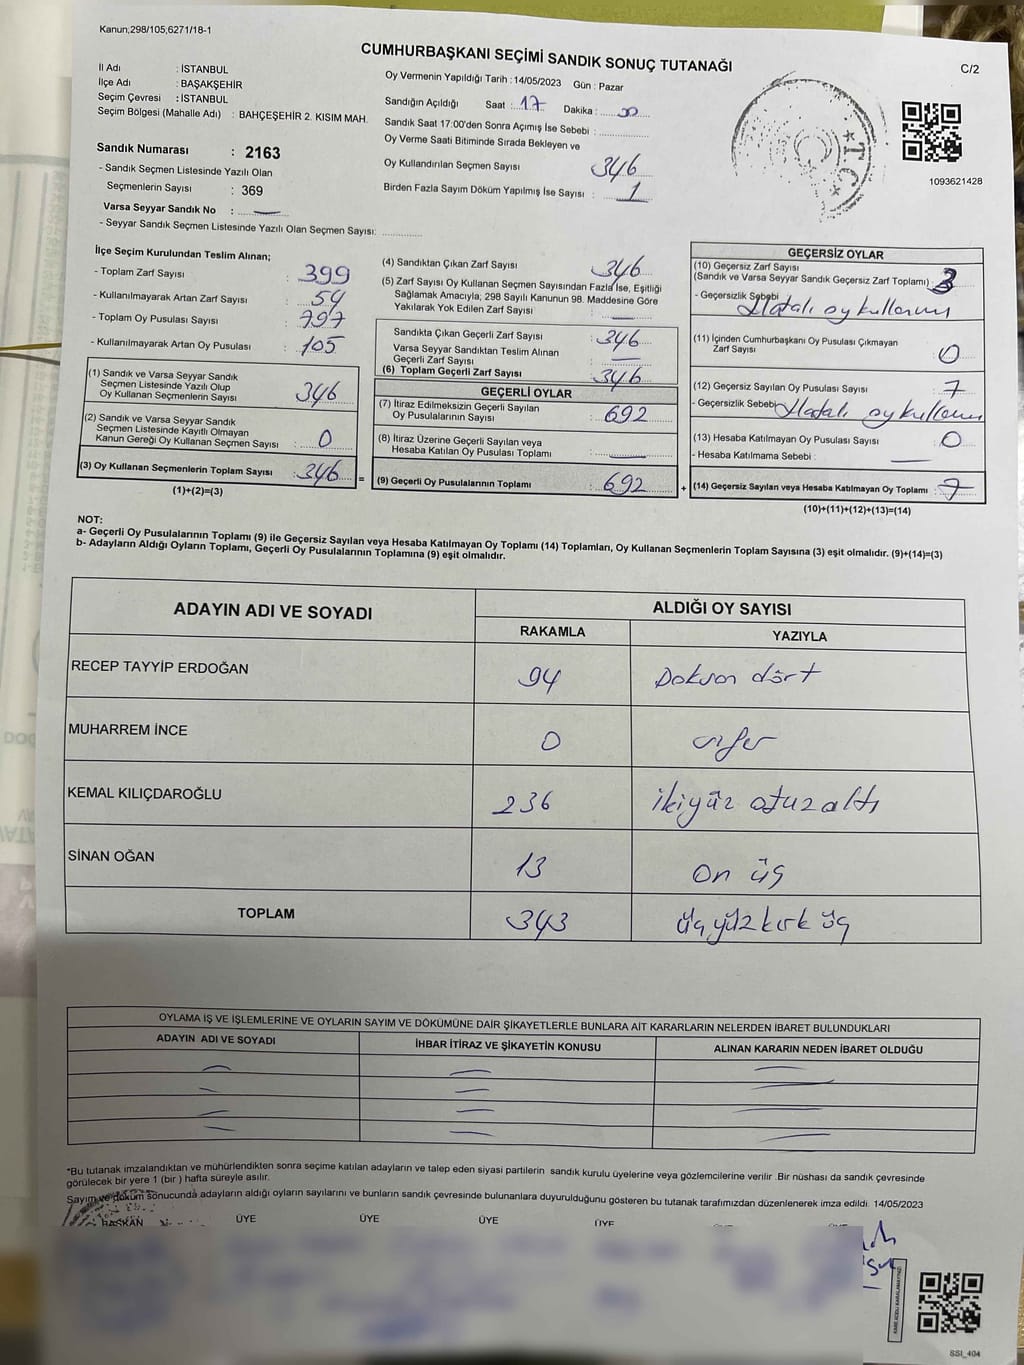 Kanun,298/105,6271/18-1
CUMHURBAŞKANI SEÇİMİ SANDIK SONUÇ TUTANAĞI
C/2
İl Adı : İSTANBUL
İlçe Adı : BAŞAKŞEHİR
Seçim Çevresi : İSTANBUL
Seçim Bölgesi (Mahalle Adı) : BAHÇEŞEHİR 2. KISIM MAH.
Sandık Numarası : 2163
- Sandık Seçmen Listesinde Yazılı Olan
Seçmenlerin Sayısı : 369
Varsa Seyyar Sandık No :
- Seyyar Sandık Seçmen Listesinde Yazılı Olan Seçmen Sayısı:
Oy Vermenin Yapıldığı Tarih : 14/05/2023 Gün : Pazar
Sandığın Açıldığı Saat : 17 Dakika : 00
Sandık Saat 17:00'den Sonra Açımış İse Sebebi :
Oy Verme Saati Bitiminde Sırada Bekleyen ve
Oy Kullandırılan Seçmen Sayısı 346
Birden Fazla Sayım Döküm Yapılmış İse Sayısı : 1
T.C.
1093621428
İlçe Seçim Kurulundan Teslim Alınan;
- Toplam Zarf Sayısı : 399
- Kullanılmayarak Artan Zarf Sayısı : 54
- Toplam Oy Pusulası Sayısı : 797
- Kullanılmayarak Artan Oy Pusulası : 105
(1) Sandık ve Varsa Seyyar Sandık
Seçmen Listesinde Yazılı Olup
Oy Kullanan Seçmenlerin Sayısı : 346
(2) Sandık ve Varsa Seyyar Sandık
Seçmen Listesinde Kayıtlı Olmayan
Kanun Gereği Oy Kullanan Seçmen Sayısı : 0
(3) Oy Kullanan Seçmenlerin Toplam Sayısı : 346 =
(1)+(2)=(3)
(4) Sandıktan Çıkan Zarf Sayısı : 346
(5) Zarf Sayısı Oy Kullanan Seçmen Sayısından Fazla İse, Eşitliği
Sağlamak Amacıyla; 298 Sayılı Kanunun 98. Maddesine Göre
Yakılarak Yok Edilen Zarf Sayısı :
Sandıkta Çıkan Geçerli Zarf Sayısı : 346
Varsa Seyyar Sandıktan Teslim Alınan
Geçerli Zarf Sayısı :
(6) Toplam Geçerli Zarf Sayısı : 346
GEÇERLİ OYLAR
(7) İtiraz Edilmeksizin Geçerli Sayılan
Oy Pusulalarının Sayısı : 692
(8) İtiraz Üzerine Geçerli Sayılan veya
Hesaba Katılan Oy Pusulası Toplamı :
(9) Geçerli Oy Pusulalarının Toplamı : 692 +
GEÇERSİZ OYLAR
(10) Geçersiz Zarf Sayısı
(Sandık ve Varsa Seyyar Sandık Geçersiz Zarf Toplamı) : 3
- Geçersizlik Sebebi Hatalı oy kullanım
(11) İçinden Cumhurbaşkanı Oy Pusulası Çıkmayan
Zarf Sayısı : 0
(12) Geçersiz Sayılan Oy Pusulası Sayısı : 7
- Geçersizlik Sebebi Hatalı oy kullanım
(13) Hesaba Katılmayan Oy Pusulası Sayısı : 0
- Hesaba Katılmama Sebebi :
(14) Geçersiz Sayılan veya Hesaba Katılmayan Oy Toplamı : 7
(10)+(11)+(12)+(13)=(14)
NOT:
a- Geçerli Oy Pusulalarının Toplamı (9) ile Geçersiz Sayılan veya Hesaba Katılmayan Oy Toplamı (14) Toplamları, Oy Kullanan Seçmenlerin Toplam Sayısına (3) eşit olmalıdır. (9)+(14)=(3)
b- Adayların Aldığı Oyların Toplamı, Geçerli Oy Pusulalarının Toplamına (9) eşit olmalıdır.
ADAYIN ADI VE SOYADI ALDIĞI OY SAYISI
RAKAMLA YAZIYLA
RECEP TAYYİP ERDOĞAN 94 Doksan dört
MUHARREM İNCE 0 sıfır
KEMAL KILIÇDAROĞLU 236 ikiyüz otuzaltı
SİNAN OĞAN 13 on üç
TOPLAM 343 üçyüzkırk üç
OYLAMA İŞ VE İŞLEMLERİNE VE OYLARIN SAYIM VE DÖKÜMÜNE DAİR ŞİKAYETLERLE BUNLARA AİT KARARLARIN NELERDEN İBARET BULUNDUKLARI
ADAYIN ADI VE SOYADI İHBAR İTİRAZ VE ŞİKAYETİN KONUSU ALINAN KARARIN NEDEN İBARET OLDUĞU
*Bu tutanak imzalandıktan ve mühürlendikten sonra seçime katılan adayların ve talep eden siyasi partilerin sandık kurulu üyelerine veya gözlemcilerine verilir .Bir nüshası da sandık çevresinde
görülecek bir yere 1 (bir ) hafta süreyle asılır.
Sayım ve döküm sonucunda adayların aldığı oyların sayılarını ve bunların sandık çevresinde bulunanlara duyurulduğunu gösteren bu tutanak tarafımızdan düzenlenerek imza edildi. 14/05/2023
BAŞKAN ÜYE ÜYE ÜYE ÜYE
SSI_404